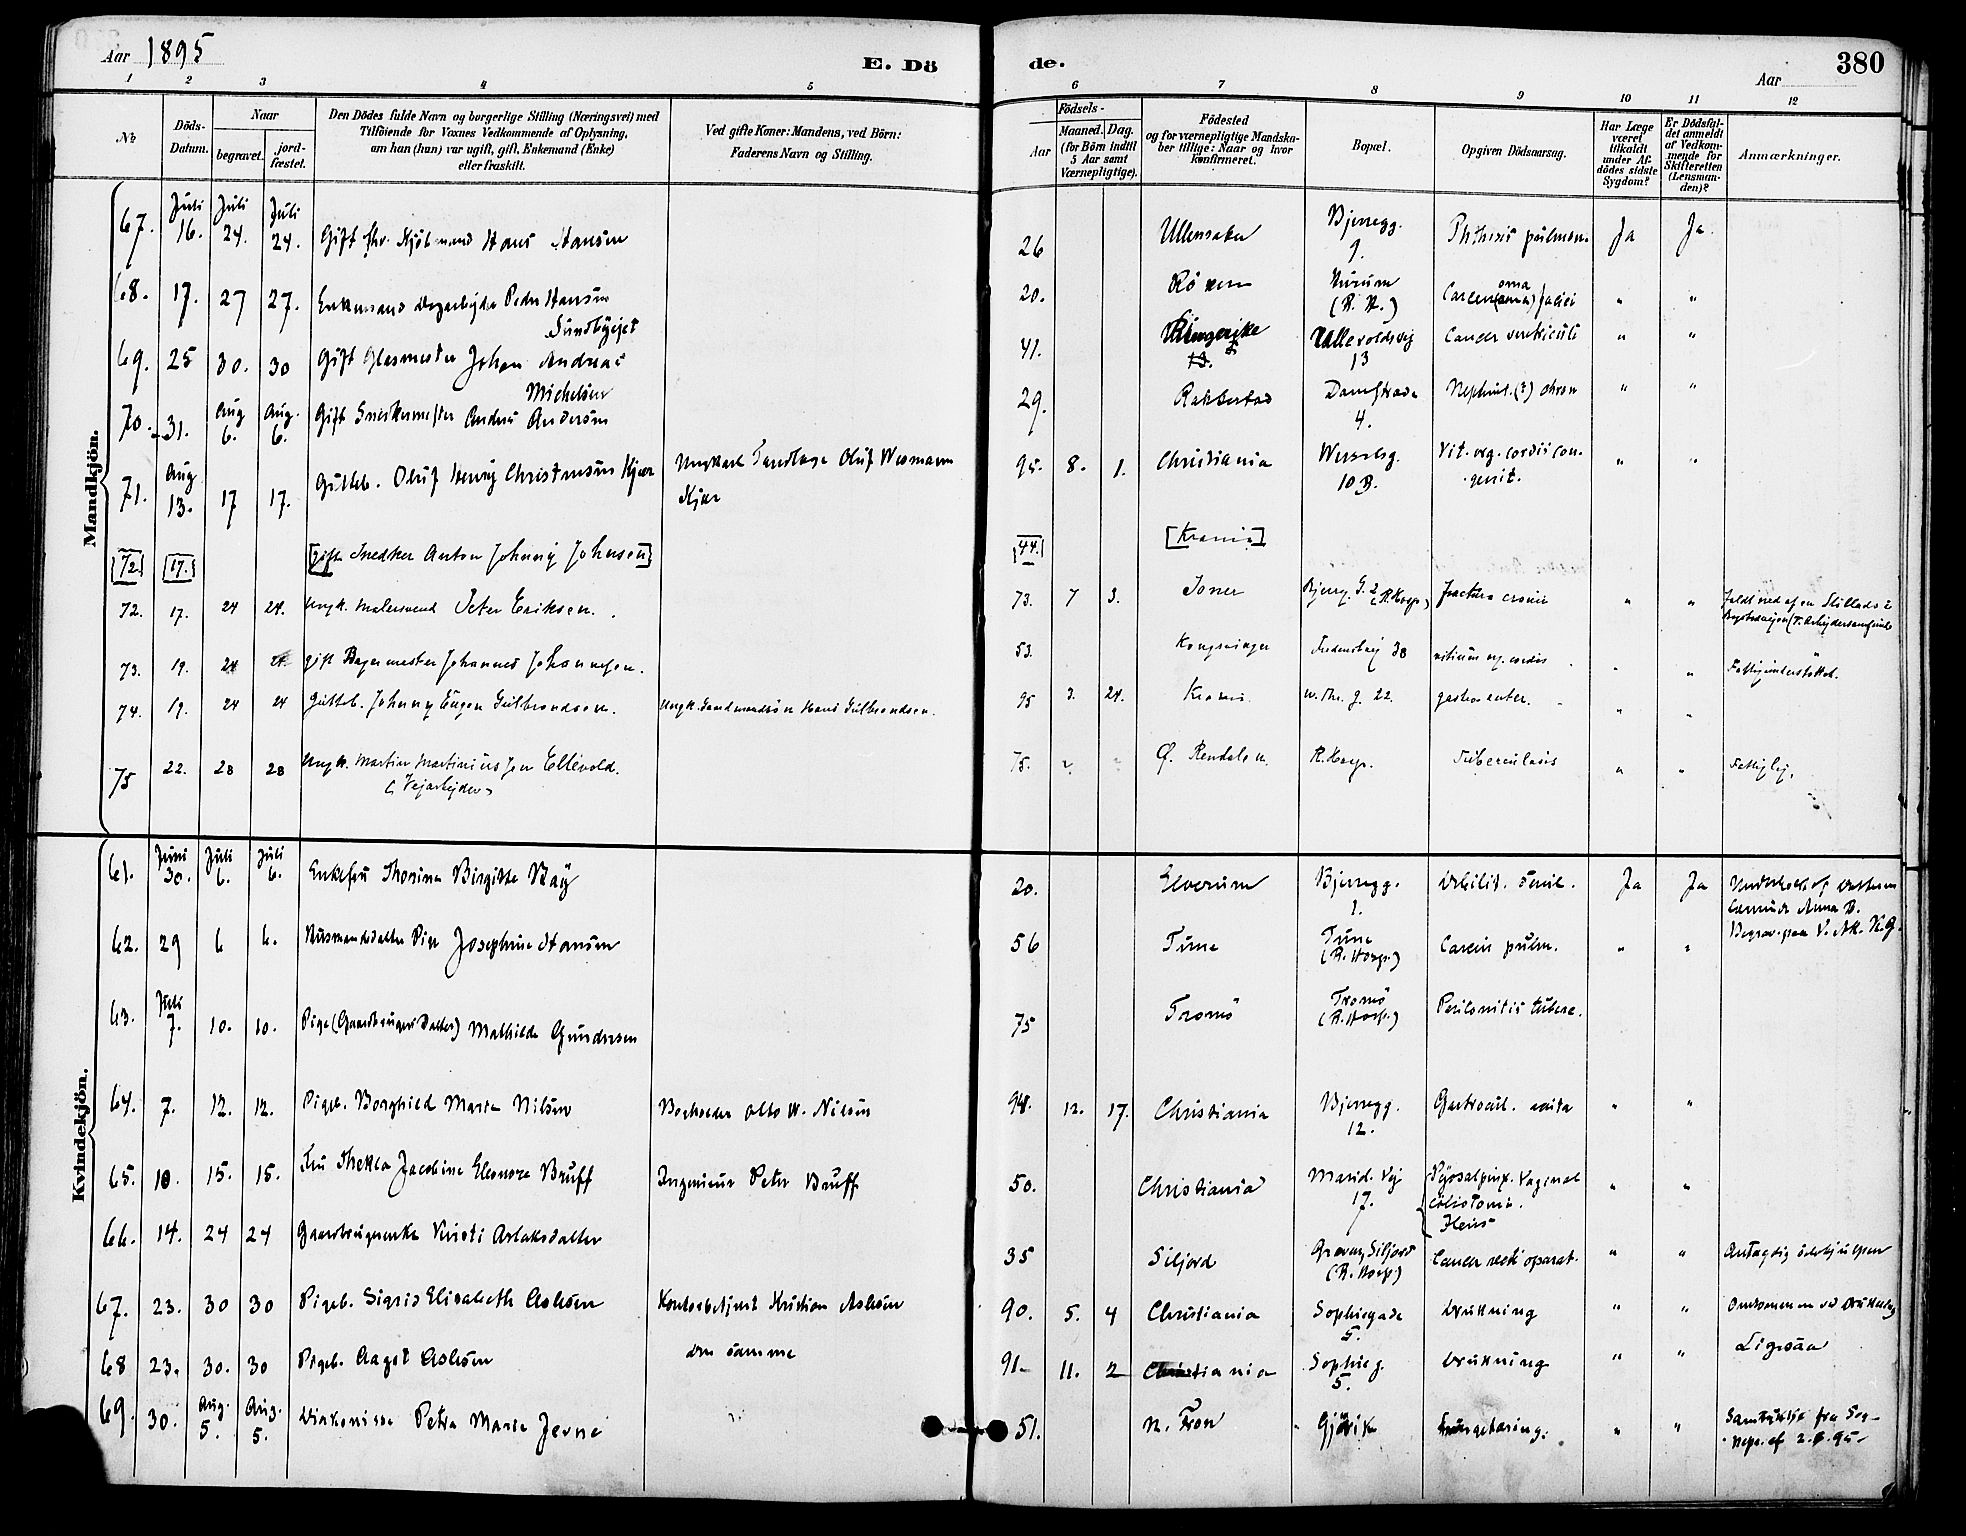 Aar 1895
E. Dö
de.
Aar
380
1 2 3 4 5 6 7 8 9 10 11 12
№
Döds-
Datum.
Naar
begravet.
jord-
fæstet.
Den Dödes fulde Navn og borgerlige Stilling (Næringsvei) med
Tilföiende for Voxnes Vedkommende af Oplysning,
om han (hun) var ugift, gift, Enkemand (Enke)
eller fraskilt.
Ved gifte Koner: Mandens, ved Börn:
Faderens Navn og Stilling.
Födsels-
Aar
Maaned. Dag.
(for Börn indtil
5 Aar samt
Værnepligtige).
Födested
og for værnepligtige Mandska-
ber tillige: Naar og hvor
konfirmeret.
Bopæl.
Opgiven Dödsaarsag.
Har Læge
været
tilkaldt
under Af-
dödes sidste
Sygdom?
Er Dödsfal-
det anmeldt
af Vedkom-
mende for
Skifteretten
(Lensman-
den)?
Anmærkninger.
Mandkjön.
67. Juli 16. Juli 24. Juli 24. Gift fhv. Kjöbmand Hans Hansen 26 Ullensaker Bjerregg. 9. Phthisis pulmon. Ja Ja.
68. 17. 27 27. Enkemand Dagarbejder Peder Hansen
Sundbyejet 20. (R. H.) faciei " "
69. 25 30. 30 Gift Glasmester Johan Andreas
Michelsen 41. Ringerike Ullevoldsvej 13 Cancer ventriculi " "
70. 31. Aug 6. Aug. 6. Gift Snedkermester Andreas Andersen 29. Rakkestad Damstrade 4. (?) chron " "
71. Aug 13. 17 17. Gutteb. Oluf Henry Christensen Kjær Ungkarl Tandlæge Oluf Wesmann
Kjær 95. 8. 1. Christiania Wesselsg. 10 B. Vit. org. cordis con-
genit. " "
[72] [17.] [gift Snedker Anton Johnny Johnsen] [44.] [Krania]
72. 17. 24 24. Ungk. Malersvend Peter Eriksen. 73. 7 3. Bjerreg. G. 2 (R. Hosp.) fractura cranii " " faldt ned af en Stillads i
73. 19. 24 gift Bagermester Johannes Johannesen. 53. Kongsvinger Fredensborg 38 vitium org. cordis " " Fattigunderstöttet.
74. 19. 24 24 Gutteb. Johnny Eugen Gulbrandsen. Ungk. Hans Gulbrandsen. 95 3. 24. Krania. 22. gastro enter. " "
75 22. 28 28 Ungk. Martin Martinius Jen Ellevold.
(Vejarbejder) 75. Ø. Rendalen. R. Hosp. Tuberculosis " " Fattiglig.
Kvindekjön.
61. Juni 30. Juli 6. Juli 6. Enkefru Thorina Birgitte Bay 20. Elverum Bjerregg. 1. Debilit. senil. Ja Ja
Anna B.
Begrav. paa V. Ak. K. G.
62. 29 6 6. Husmandsdatter Pige Josephine Hansen 56 Tune Tune (R. Hosp.) Carcin pulm. " "
63. Juli 7. 10. 10. Pige (Gaardbrugers Datter) Mathilde Gundersen 75 Tromö Tromö (R. Hosp.) Peritonitis tuberc.
64. 7. 12. 12. Pigeb. Borghild Marie Nilsen Bogholder Otto W. Nilsen 94. 12. 17. Christiania Bjerregg. 12. " "
65. 10. 15. 15. Fru Thekla Jacobine Eleonore Bruff Ingenieur Peter Bruff 50. Christiania Marid. Vej 17. Pyosalpinx. Vaginal
Cöliotomi.
Ileus " "
66. 14. 24 24 Gaardbrugerenke Kirsti Aslaksdatter 35 Siljord Siljord (R. Hosp.) Cancer recti operat. " "
67. 23. 30 30 Pigeb. Sigrid Elisabeth Aslesen Kontorbetjent Kristian Aslesen 90. 5. 4 Christiania Sophiegade 5. Drukning " " Omkommen ved Drukning
68 23. 30. 30 Pigeb. Aagot Aslesen den samme 91 11. 2 Christiania Sophieg. 5. Drukning " " Ligesaa
69. 30. Aug. 5. Aug. 5. Diakonisse Petra Marie Jevne 51. N. Fron Gjövik " " Samtykke fra Sog-
nepr. af 2.8.95